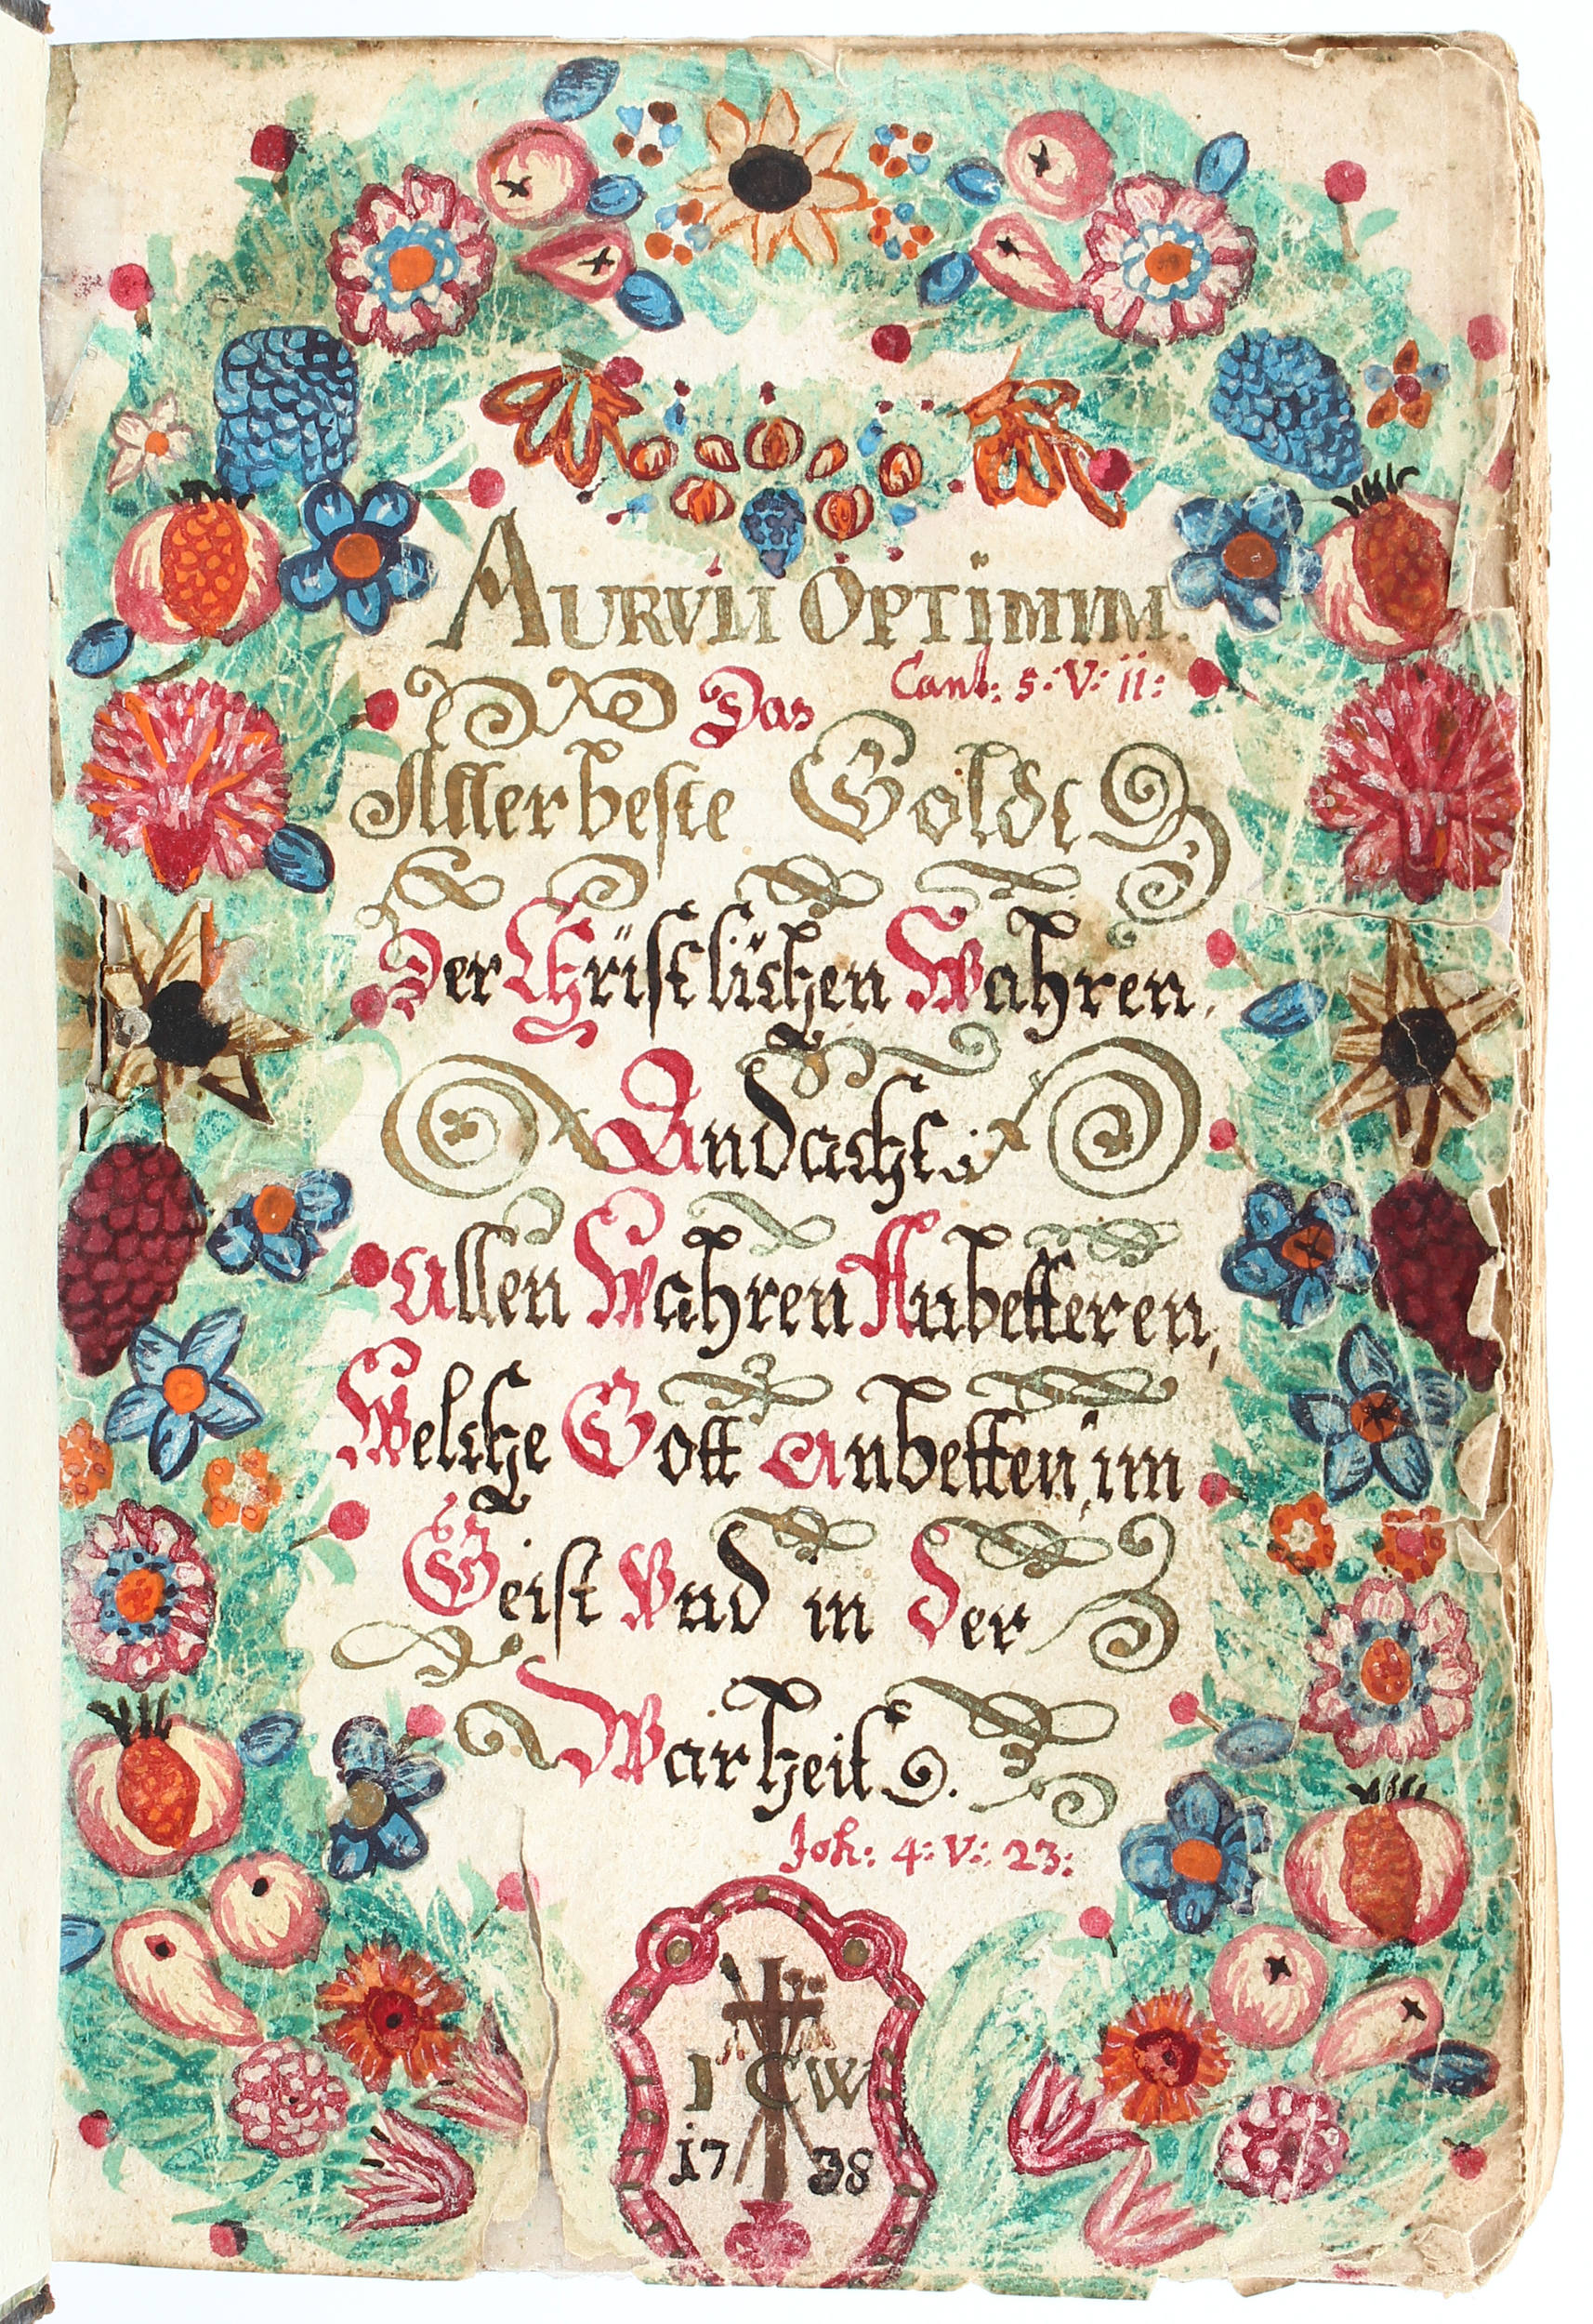 AURVM OPTIMVM.
Cant: 5: V: 11:
Das
Allerbeste Golde
Der Christlichen Wahren.
Andacht.
Allen Wahren Anbetteren,
Welche Gott Anbetten, im
Geist Vnd in der
Warheit.
Joh: 4: V: 23:
I C W
17 38